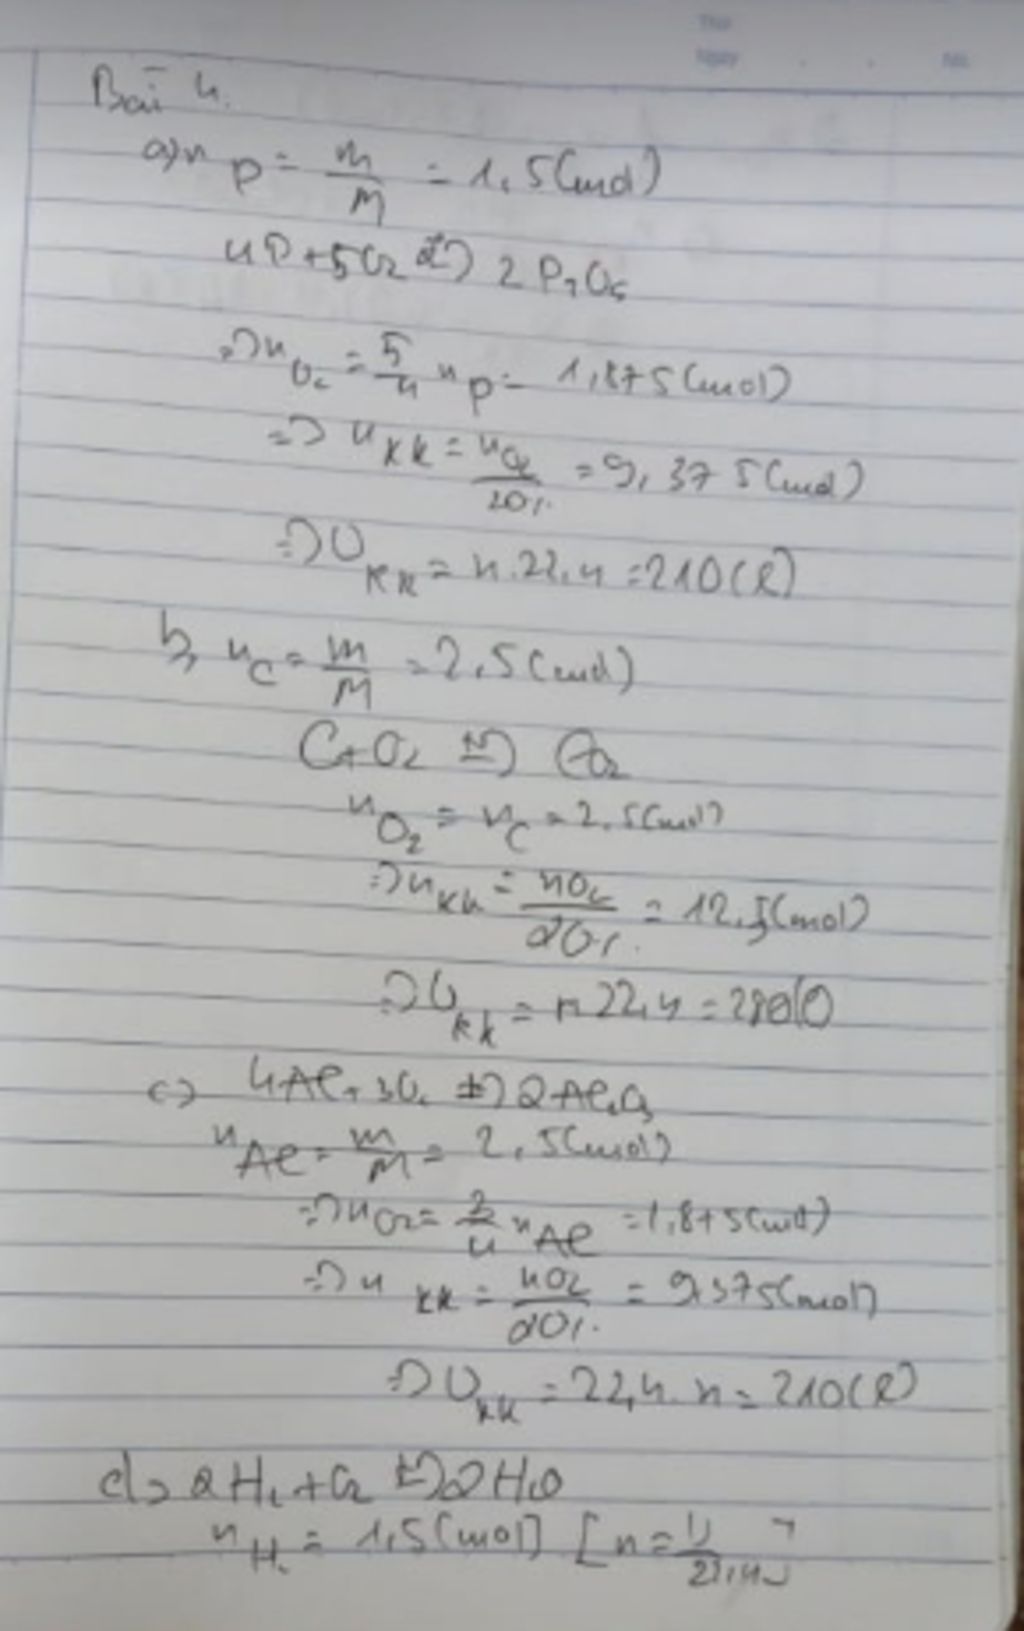 Thứ
Ngày . . No.
Bài 4.
a) n P = m/M = 1,5 (mol)
4P + 5O2 t°→ 2P2O5
=> nO2 = 5/4 nP = 1,875 (mol)
=> nKK = nO2/20% = 9,375 (mol)
=> VKK = n.22,4 = 210 (l)
b, nC = m/M = 2,5 (mol)
C + O2 t°→ CO2
nO2 = nC = 2,5 (mol)
=> nKK = nO2/20% = 12,5 (mol)
=> VKK = n.22,4 = 280 (l)
c) 4Al + 3O2 t°→ 2Al2O3
nAl = m/M = 2,5 (mol)
=> nO2 = 3/4 nAl = 1,875 (mol)
=> nKK = nO2/20% = 9,375 (mol)
=> VKK = 22,4.n = 210 (l)
d) 2H2 + O2 t°→ 2H2O
nH2 = 1,5 (mol) [n = V/22,4]